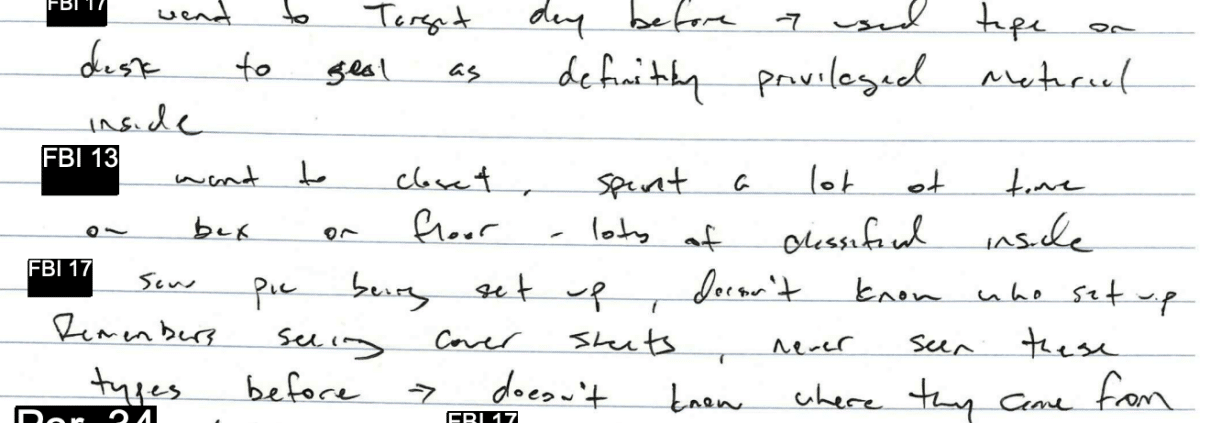 FBI 17 went to Target day before → used tape on
desk to seal as definitely privileged material
inside
FBI 13 went to closet, spent a lot of time
on box on floor - lots of classified inside
FBI 17 saw pic being set up, doesn't know who set up
Remembers seeing cover sheets, never seen these
types before → doesn't know where they came from
Per. 34 FBI 17